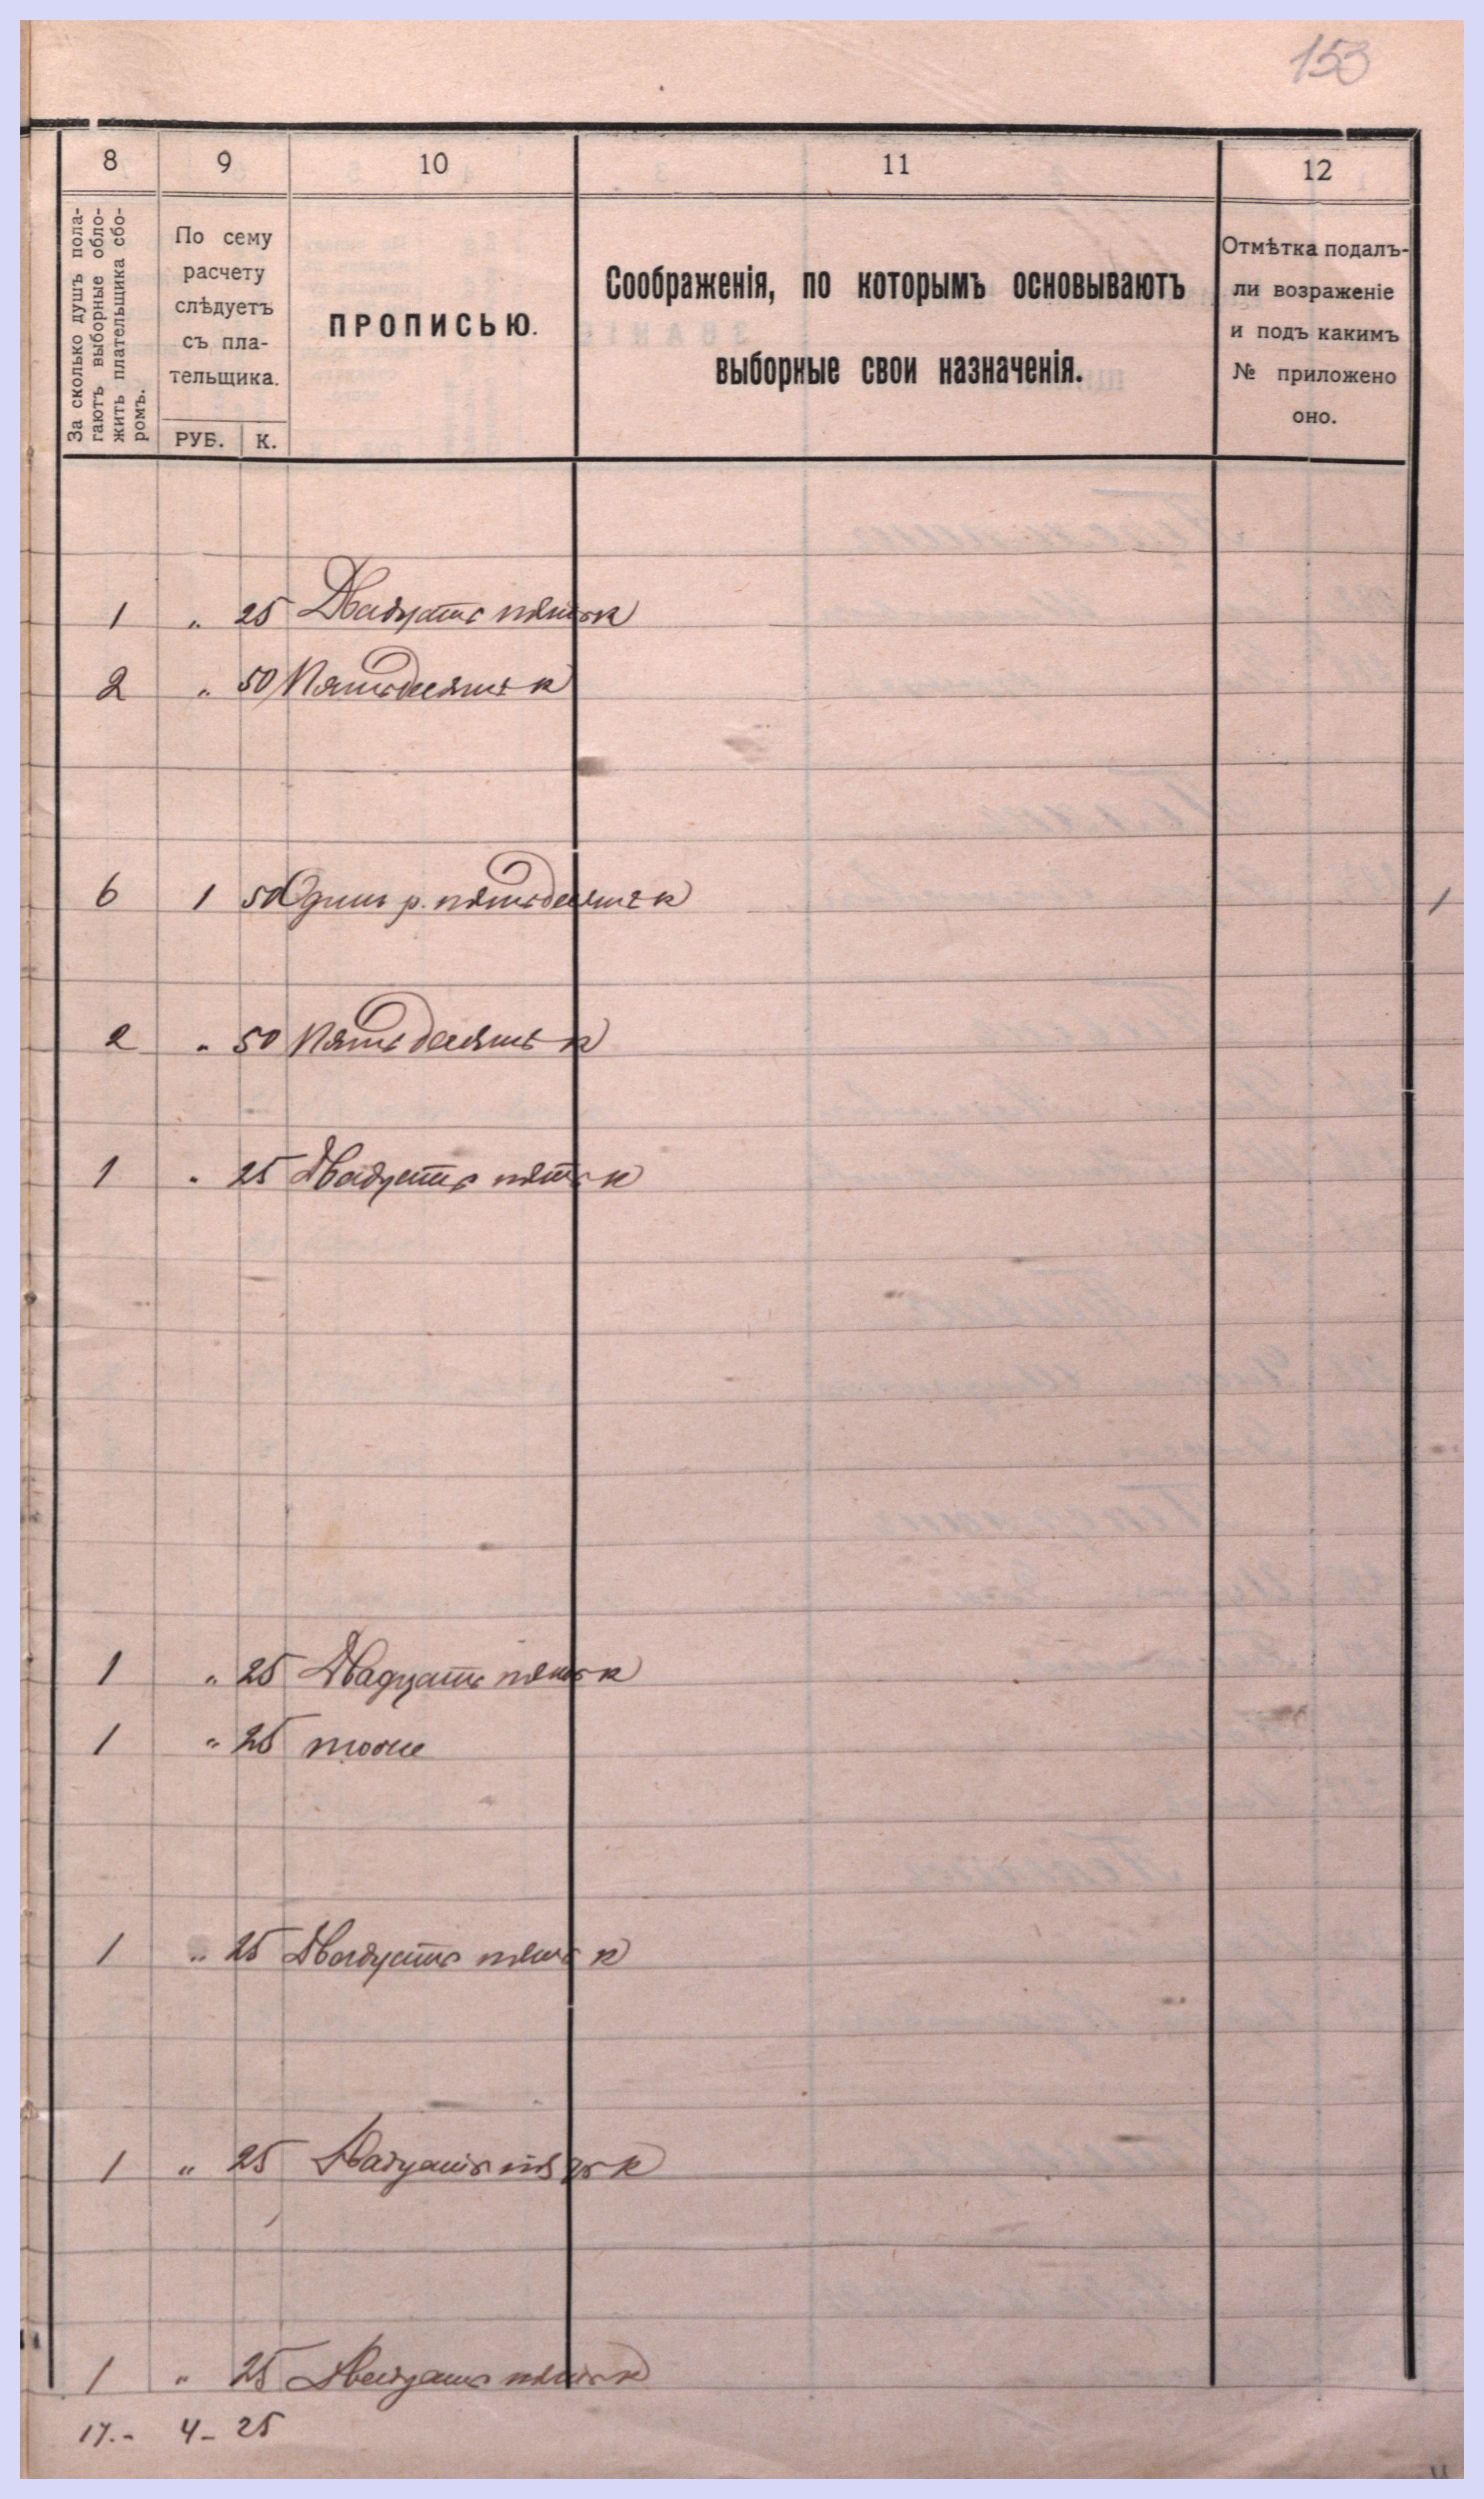 153
8 9 10 11 12
За сколько душъ пола-
гаютъ выборные обло-
жить плательщика сбо-
ромъ.
По сему
расчету
слѣдуетъ
съ пла-
тельщика.
РУБ. К.
ПРОПИСЬЮ.
Соображенія, по которымъ основываютъ
выборные свои назначенія.
Отмѣтка подалъ-
ли возраженіе
и подъ какимъ
№ приложено
оно.
1 " 25 Двадцать пять к
2 " 50 Пятьдесятъ к
6 1 50 Одинъ р. пятьдесятъ к 1
2 " 50 Пятьдесятъ к
1 " 25 Двадцать пять к
1 " 25 Двадцать пять к
1 " 25 тоже
1 " 25 Двадцать пять к
1 " 25 Двадцать пять к
1 " 25 Двадцать пять к
17.- 4- 25